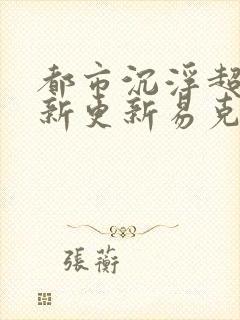 都市沉浮超
新更新易克
張蘅